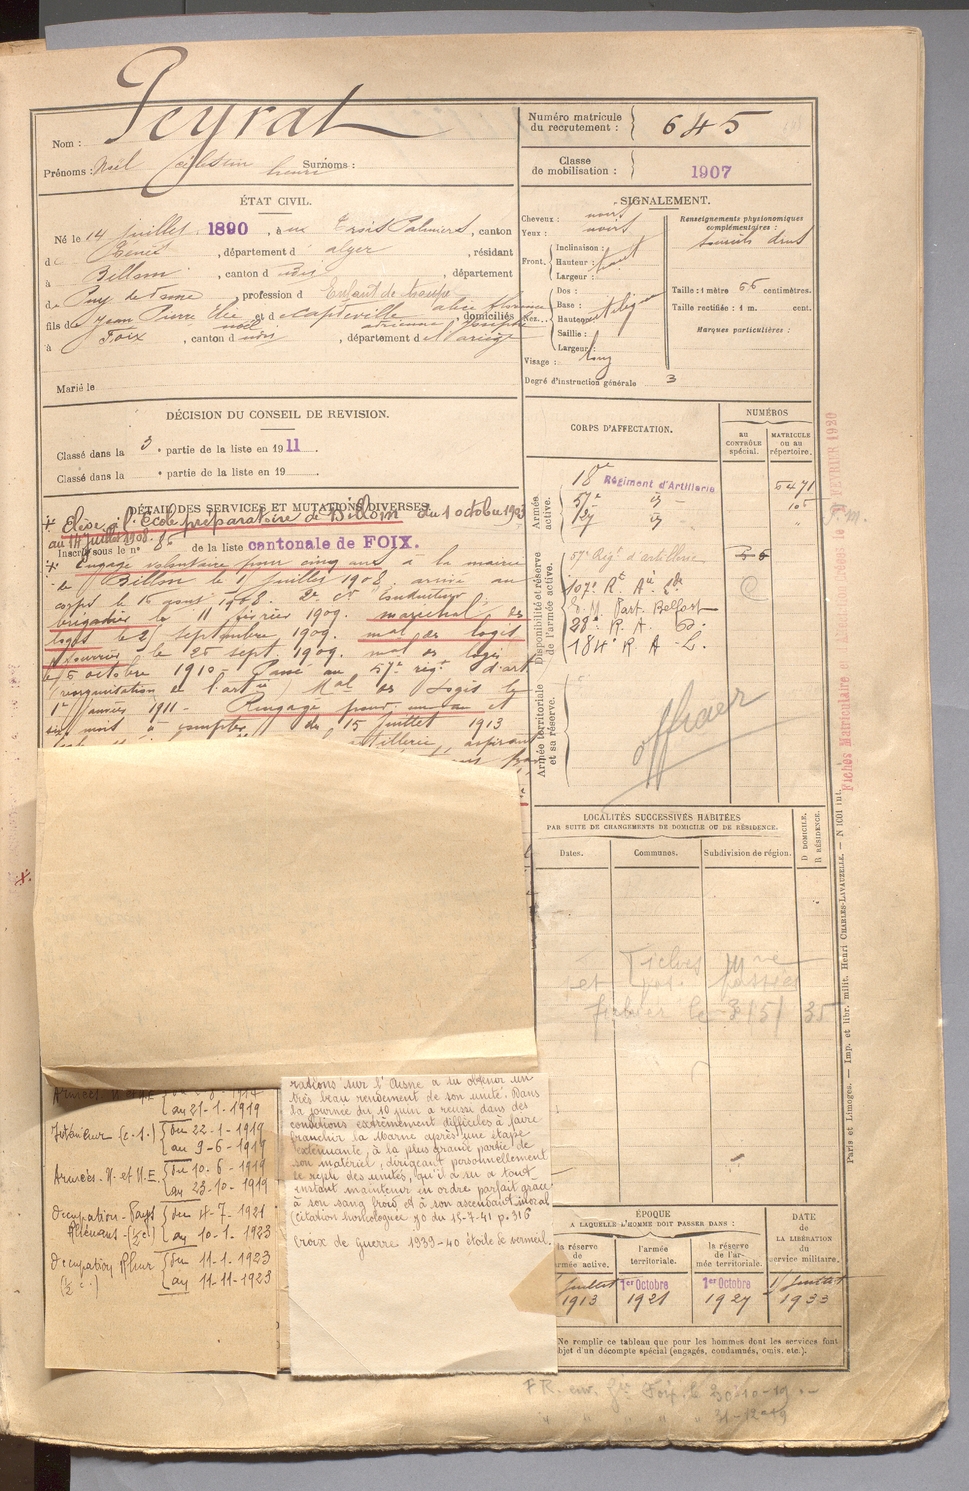 Nom : Peyrat
Prénoms : Noël Célestin henri Surnoms :
Numéro matricule du recrutement : 645
Classe de mobilisation : 1907
ÉTAT CIVIL.
Né le 14 juillet 1890, à aux Trois Palmiers, canton
d , département d' alger, résidant
à Billom, canton d udis, département
de Puy de Dome, profession d Enfant de troupe
fils de Jean Pierre Elie noël et d ecapteville alice florence adrienne Josephe, domiciliés
à Foix, canton d udis, département de l'ariège
Marié le
SIGNALEMENT.
Cheveux : noirs
Yeux : noirs
Front. Inclinaison :
Hauteur : haut
Largeur :
Nez. Dos :
Base :
Hauteur
Saillie :
Largeur :
Visage : long
Degré d'instruction générale 3
Renseignements physionomiques complémentaires :
sourcils drus
Taille : 1 mètre 66 centimètres.
Taille rectifiée : 1 m. cent.
Marques particulières :
DÉCISION DU CONSEIL DE REVISION.
Classé dans la 3e partie de la liste en 1911.
Classé dans la e partie de la liste en 19
DÉTAIL DES SERVICES ET MUTATIONS DIVERSES.
Elève à l'École préparatoire de Billom du 1 octobre 1903
au 14 juillet 1908.
Inscrit sous le n° 85 de la liste cantonale de FOIX.
Engagé volontaire pour cinq ans à la mairie
de Billom le 15 juillet 1908, arrivé au
corps le 15 août 1908. 2e cr Conducteur,
brigadier le 11 février 1909. maréchal des
logis le 25 septembre 1909. mal des logis
fourrier le 25 sept. 1909. mal des logis
le 6 octobre 1910 - Passé au 57e régt d'art
(reorganisation de l'artie) Mal des Logis le
1er janvier 1911 - Rengagé pour un an et
six mois à compter du 15 juillet 1913
artillerie, aspirant
CORPS D'AFFECTATION.
NUMÉROS
AU CONTRÔLE SPÉCIAL.
MATRICULE OU AU RÉPERTOIRE.
Armée active.
18e Régiment d'Artillerie 6471
57e id - 105
id -
Disponibilité et réserve de l'armée active.
57e Régt d'artillerie
107e Rt Aie Lde
P. M. Part. Belfort
28e R. A. D.
184e R. A. L.
Armée territoriale et sa réserve.
officier
LOCALITÉS SUCCESSIVES HABITÉES
PAR SUITE DE CHANGEMENTS DE DOMICILE OU DE RÉSIDENCE.
D DOMICILE, R RÉSIDENCE.
Dates. Communes. Subdivision de région.
Fiches Mle
et passées
fichier le 3/5/35
Fiches Matriculaire et FÉVRIER 1920
Paris et Limoges. — Imp. et libr. milit. Henri CHARLES-LAVAUZELLE. — N 1C01 int.
au 21-1-1919
Intérieur (c.s.) du 22-1-1919
au 9-6-1919
Armées N. et N.E. du 10-6-1919
au 23-10-1919
Occupation-Pays du 4-7-1921
Rhénans (½ c) au 10-1-1923
Occupation Rhur du 11-1-1923
(½ c.) au 11-11-1923
rations sur l'Aisne a su obtenir un
très beau rendement de son unité. Dans
la journée du 10 juin a réussi dans des
conditions extrêmement difficiles à faire
franchir la Marne après une étape
exténuante, à la plus grande partie de
son matériel, dirigeant personnellement
le repli des unités, qu'il a su à tout
instant maintenir en ordre parfait grâce
à son sang froid et à son ascendant moral
(citation homologuée JO du 15-7-41 p. 316
Croix de Guerre 1939-40 étoile de vermeil.
ÉPOQUE
A LAQUELLE L'HOMME DOIT PASSER DANS :
la réserve de armée active.
l'armée territoriale.
la réserve de l'armée territoriale.
DATE DE LA LIBÉRATION du service militaire.
juillet 1913
1er Octobre 1921
1er Octobre 1927
15 juillet 1933
Ne remplir ce tableau que pour les hommes dont les services font
objet d'un décompte spécial (engagés, condamnés, omis, etc.).
F R. env. Foix le 30-10-19
31-12-19